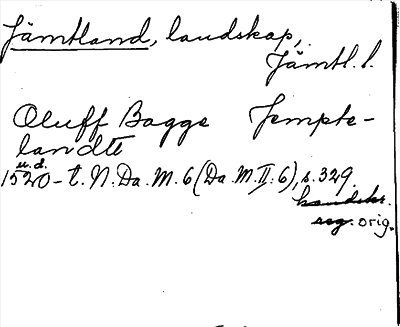 Jämtland, landskap,
Jämtl. l.
Oluff Bagge Jempte-
landt
u.d.
1520-t. N. Da. M. 6 (Da. M. II: 6), s. 329.
handskr.
reg. orig.